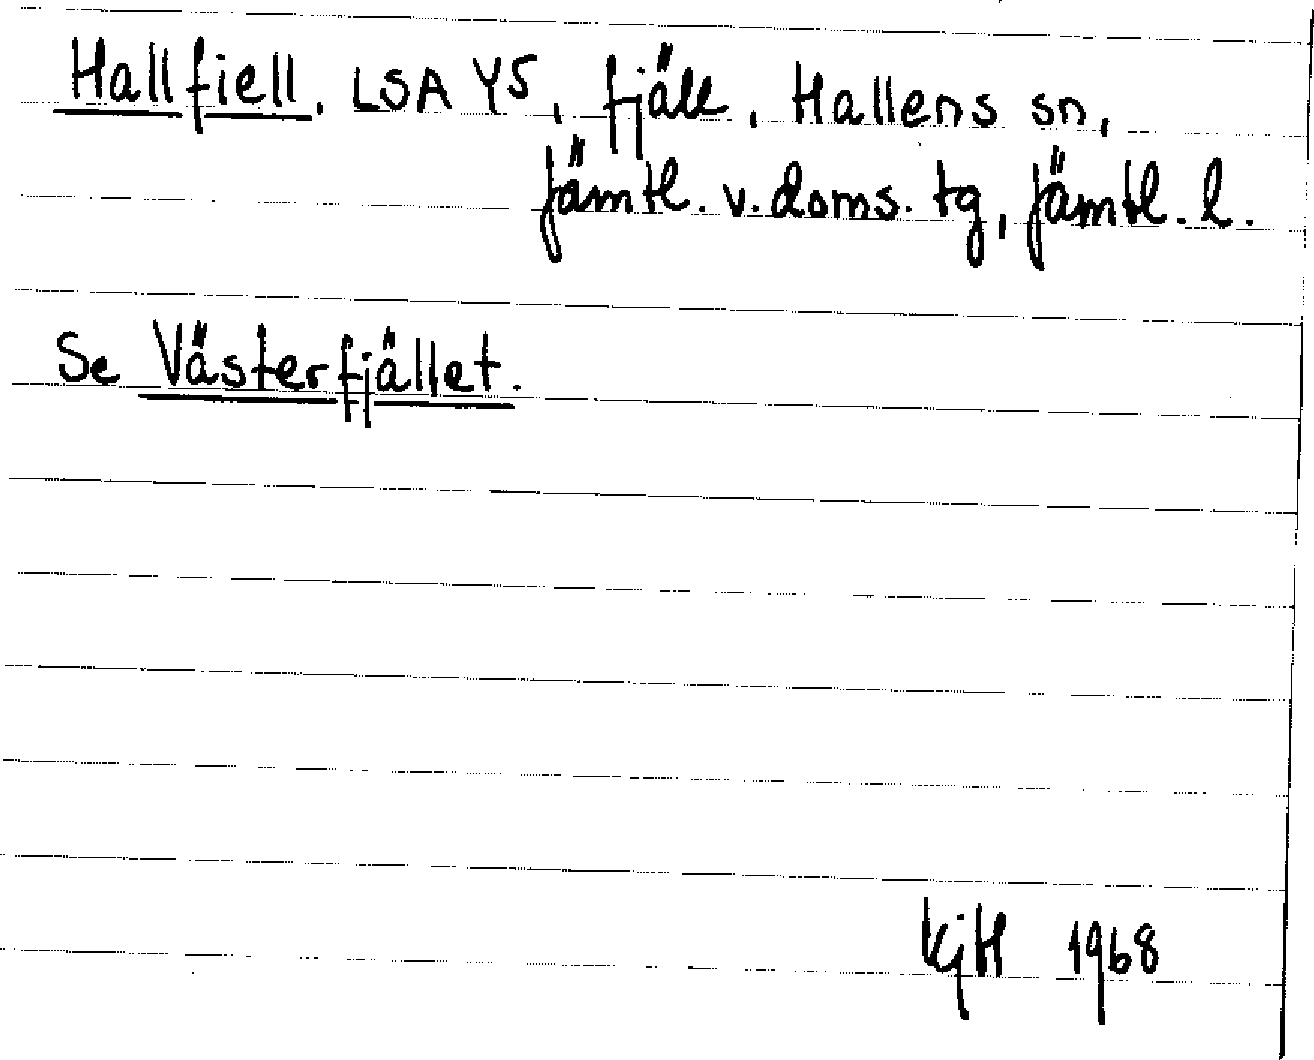 Hallfiell. LSA Y5, fjäll, Hallens sn,
Jämtl. v. doms. tg, Jämtl. l.
Se Västerfjället.
KjH 1968